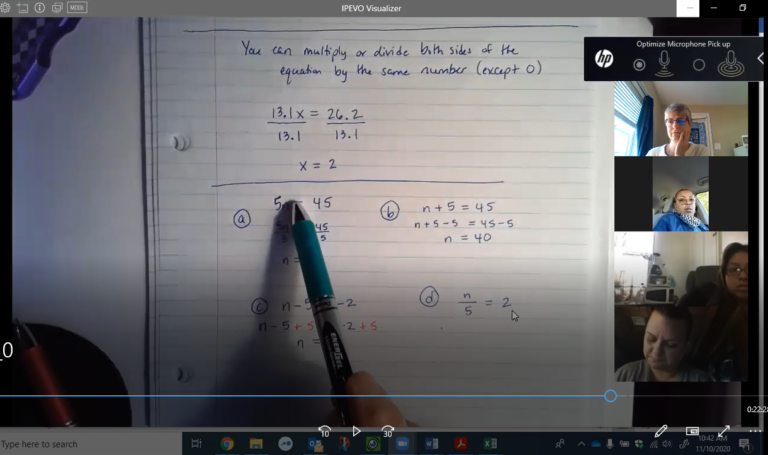 IPEVO Visualizer
Optimize Microphone Pick up
hp
You can multiply or divide both sides of the
equation by the same number (except 0)
13.1x = 26.2
13.1 13.1
x = 2
(a)
5 45
45
5
n =
(b) n + 5 = 45
n + 5 - 5 = 45 - 5
n = 40
(c) n - 5 -2
n - 5 + 5 -2 + 5
n =
(d) n
5 = 2
ENERGEL
10
30
Type here to search
10:42 AM
11/10/2020